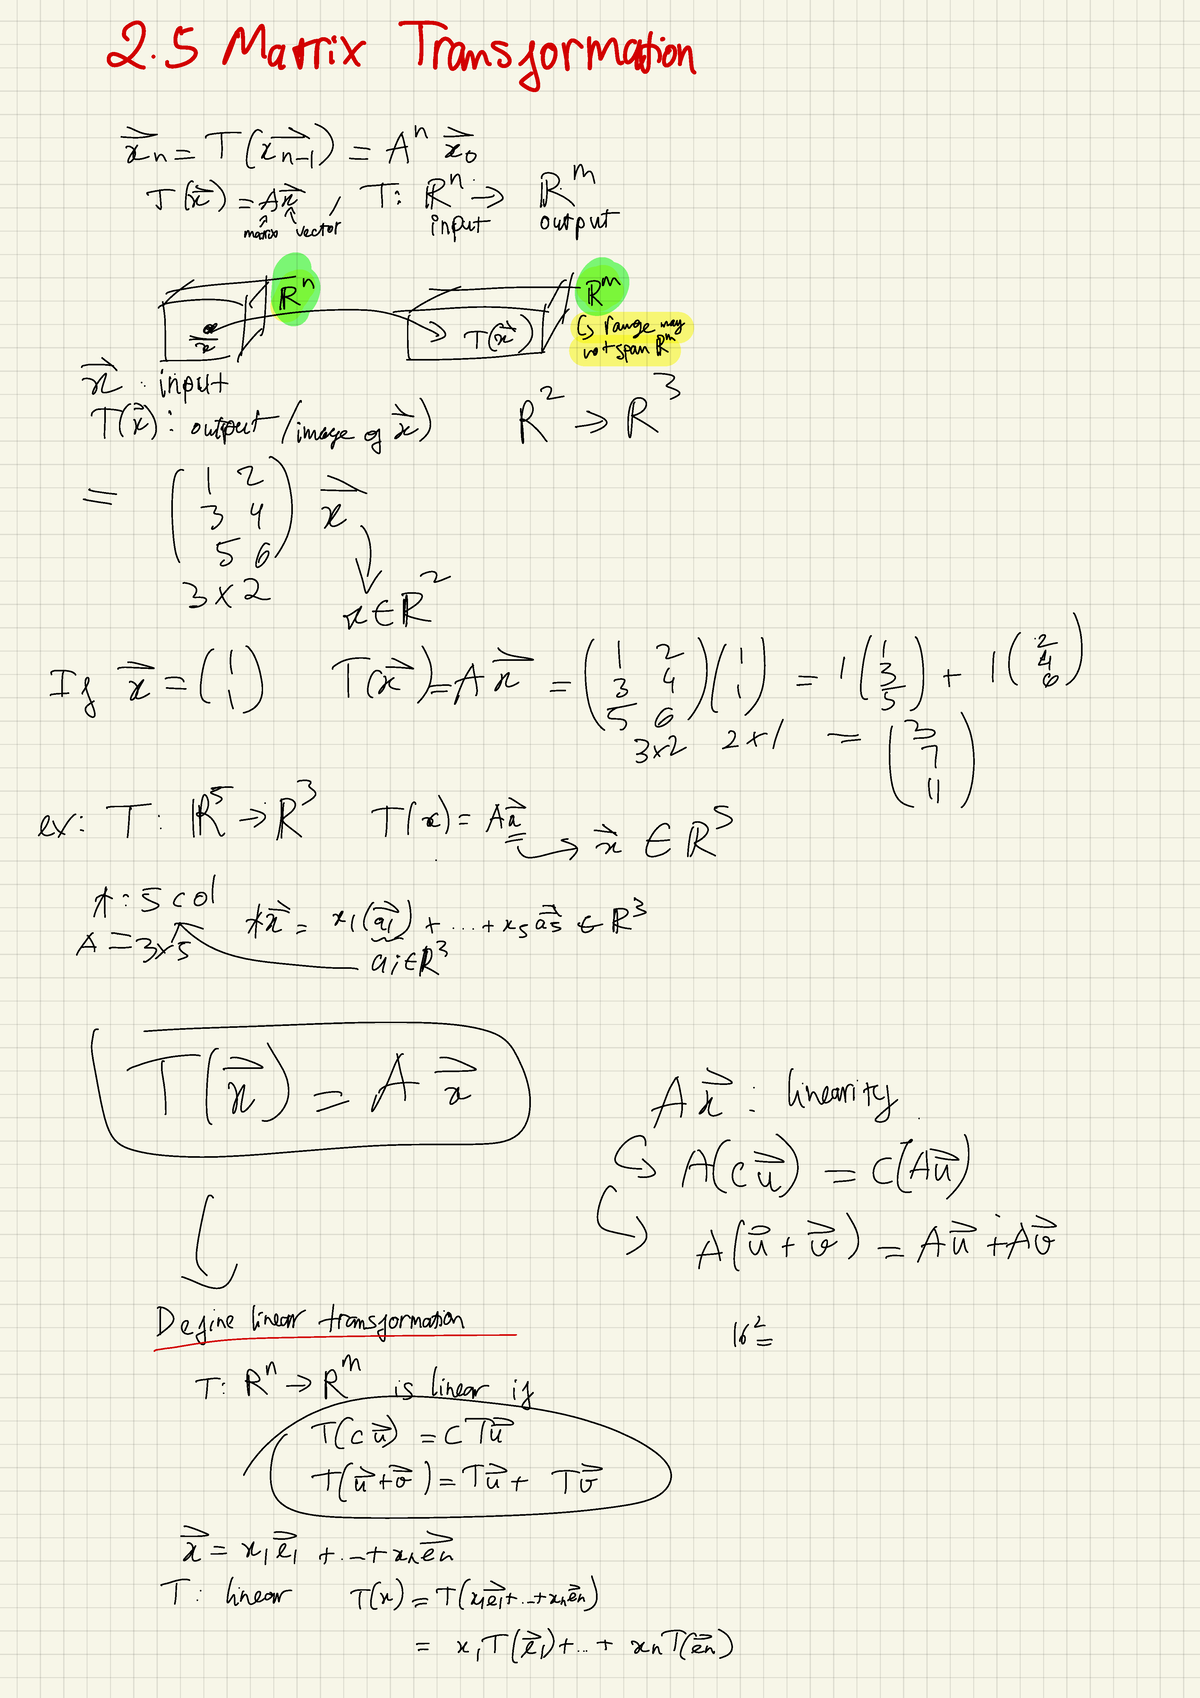 2.5 Matrix Transformation
x⃗n = T(x⃗n-1) = Aⁿ x⃗₀
T(x⃗) = Ax⃗ , T: ℝⁿ → ℝᵐ
matrix vector input output
ℝⁿ ℝᵐ
x⃗ T(x⃗) ↳ range may
not span ℝᵐ
x⃗ : input
T(x⃗): output/image of x⃗) R² → R³
= (1 2
3 4
5 6) x⃗
3x2
x∈ℝ²
If x⃗ = (1
1) T(x⃗) = Ax⃗ = (1 2
3 4
5 6)(1
1) = 1(1
3
5) + 1(2
4
6)
3x2 2x1 = (3
7
11)
ex: T: ℝ⁵ → ℝ³ T(x) = Ax⃗ → x⃗ ∈ ℝ⁵
A: 5 col Ax⃗ = x₁(a⃗₁) + ... + x₅a⃗₅ ∈ ℝ³
A = 3x5 ai∈ℝ³
T(x⃗) = A x⃗
Ax⃗ : linearity
↳ A(cu⃗) = C(Au⃗)
↳ A(u⃗ + v⃗) = Au⃗ + Av⃗
Define linear transformation
16² =
T: ℝⁿ → ℝᵐ is linear if
T(cu⃗) = CTu⃗
T(u⃗+v⃗) = Tu⃗ + Tv⃗
x⃗ = x₁e⃗₁ + ... + xₙe⃗ₙ
T: linear T(x) = T(x₁e⃗₁+...+xₙe⃗ₙ)
= x₁T(e⃗₁)+...+ xₙT(e⃗ₙ)